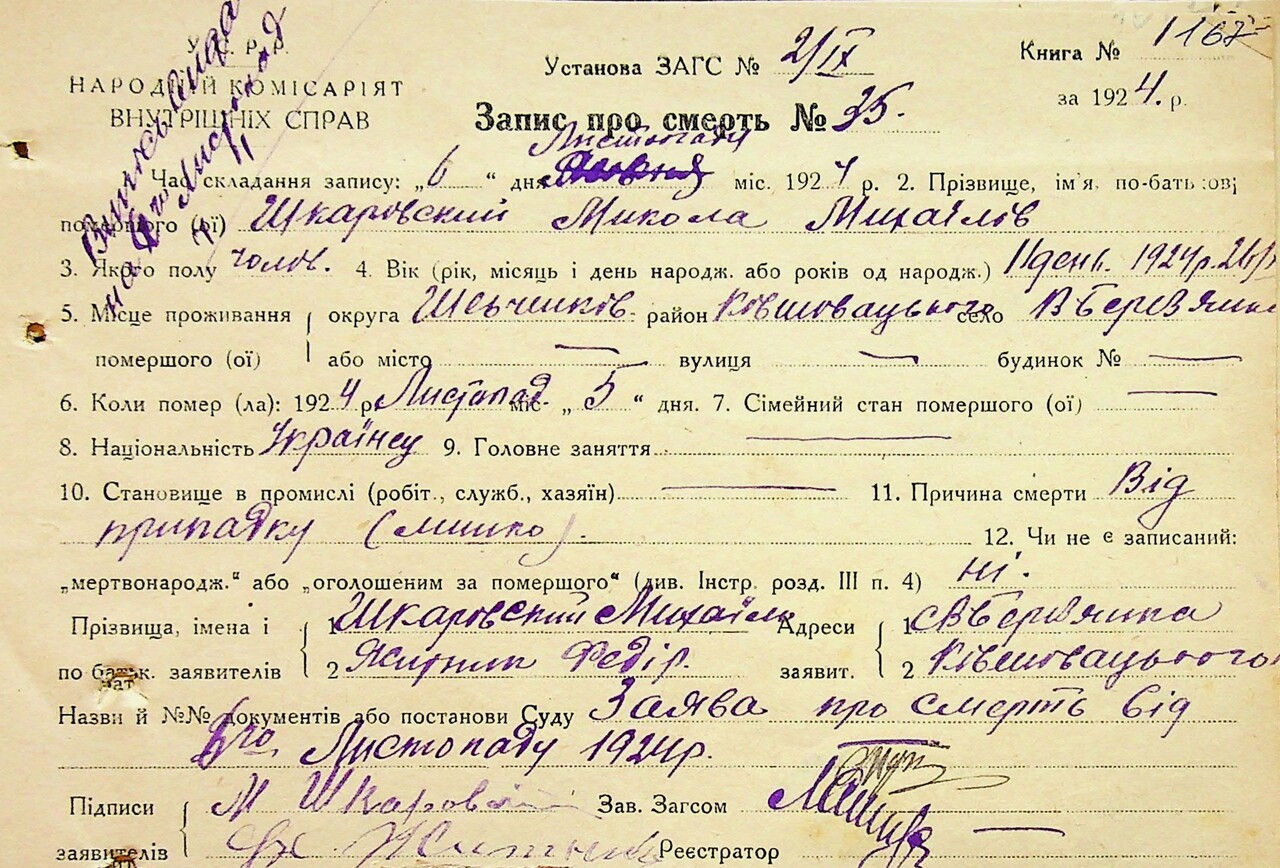 У. С. Р. Р.
НАРОДНІЙ КОМІСАРІЯТ
ВНУТРІШНІХ СПРАВ
Установа ЗАГС № 2/IX
Книга № 1167
за 1924. р.
Запис про смерть № 35.
Листопаду
Час складання запису: „6“ дня міс. 1924 р. 2. Прізвище, ім'я, по-батьков;
помершого (ої) Шкаровский Микола Михаілов
3. Якого полу чолов. 4. Вік (рік, місяць і день народж. або років од народж.) 11 день. 1924 р.
5. Місце проживання округа Шевченков. район Ківшовацького село В Берев'янка
помершого (ої) або місто — вулиця — будинок № —
6. Коли помер (ла): 1924 р. Листопад. міс. „5“ дня. 7. Сімейний стан помершого (ої) —
8. Національність Українец 9. Головне заняття —
10. Становище в промислі (робіт., служб., хазяїн) — 11. Причина смерти Від
припадку 12. Чи не є записаний:
„мертвонародж.“ або „оголошеним за помершого“ (див. Інстр. розд. III п. 4) ні.
Прізвища, імена і 1 Шкаровский Михаіль Адреси 1 с В Берев'янка
по батьк. заявителів 2 Федір. заявит. 2 Ківшовацького
Назви й №№ документів або постанови Суду Заява про смерть від
6го Листопаду 1924 р.
Підписи М Шкаровский Зав. Загсом
заявителів Реєстратор —